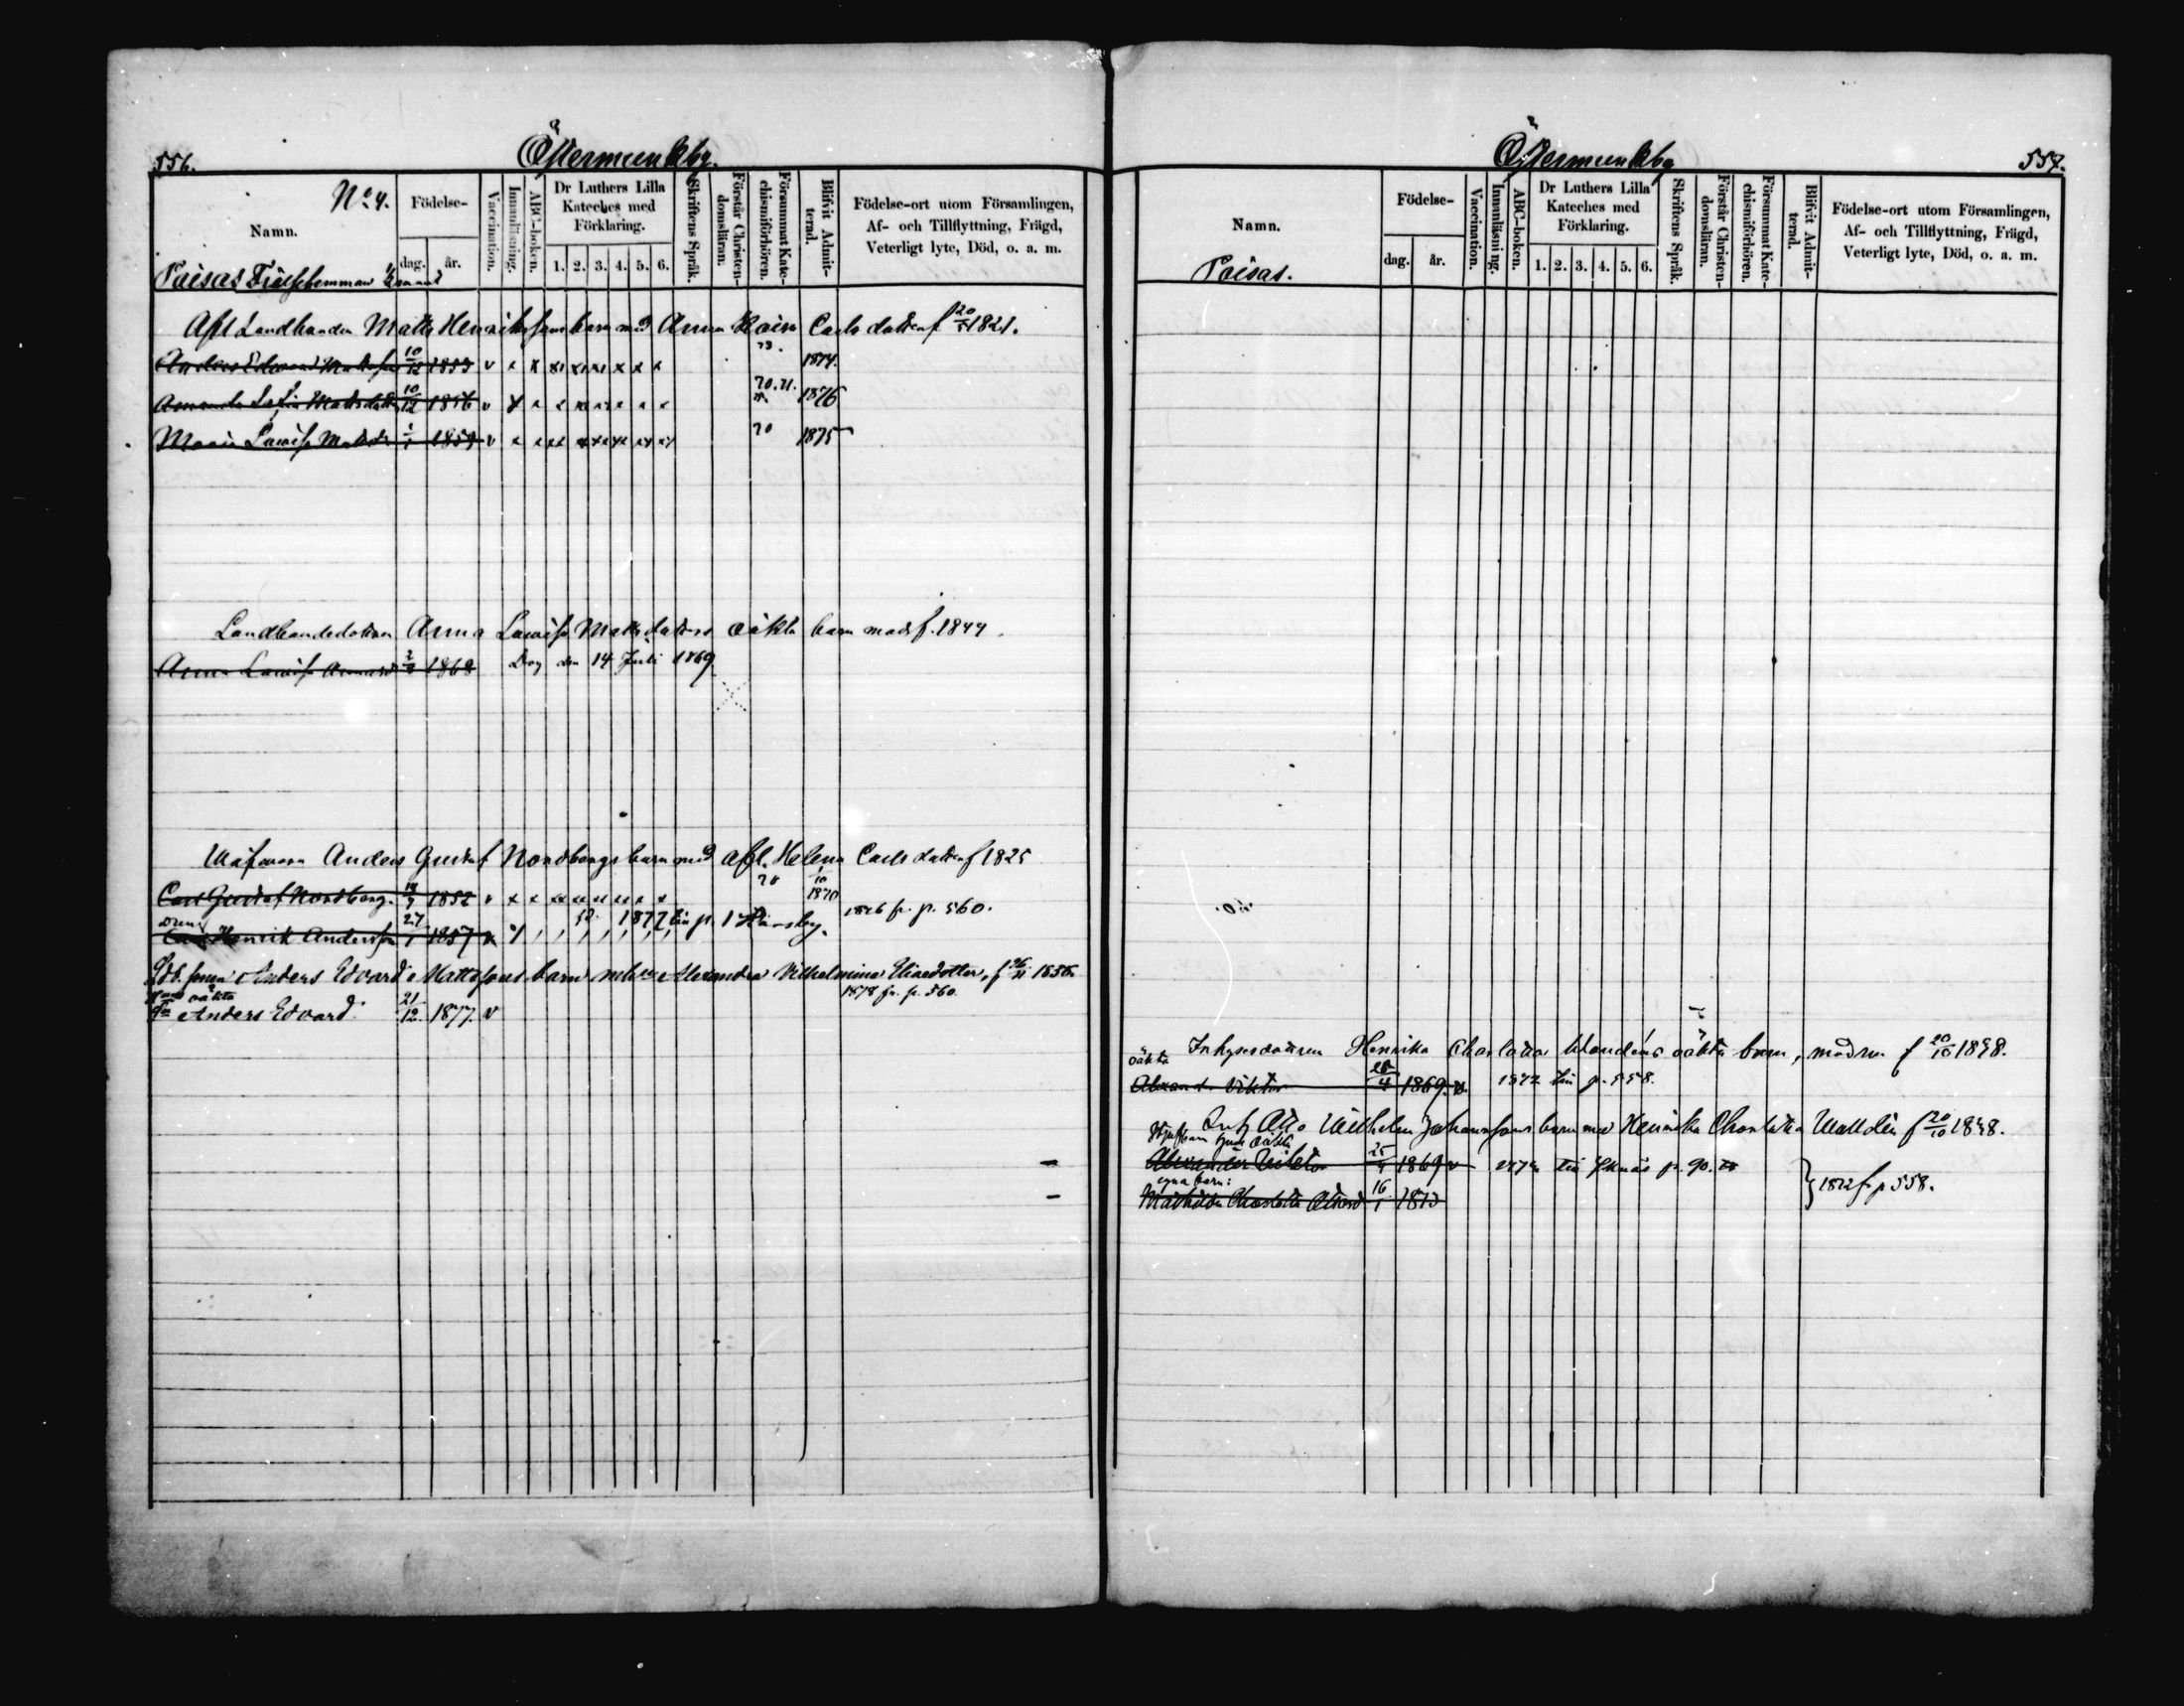 556.
Östermunkby.
No 4.
Namn.
Födelse-
dag.
år.
Vaccination.
Innanläsning.
ABC-boken.
Dr Luthers Lilla
Kateches med
Förklaring.
1. 2. 3. 4. 5. 6.
Skriftens Språk.
Förstår Christen-
domsläran.
Försummat Kate-
chismiförhören.
Blifvit Admit-
terad.
Födelse-ort utom Församlingen,
Af- och Tillflyttning, Frägd,
Veterligt lyte, Död, o. a. m.
Paisas Frälsehemman
Afl Landbonden Matts Henrikssons barn med Anna Caisa Carlsdotter f 20/5 1821.
Anders Edvard Mattsson 10/12 1853 v 73. 1874.
Amanda Sofia Mattsdotter 10/12 1856 v 70. 71. 1876
Maria Lovisa Mattsdr 1859 v 70 1875
Landbondedottren Anna Lovisa Mattsdotters oäkta barn mod f. 1844.
Anna Lovisa 1868 Dog den 14 Juli 1869
Anders Gustaf Nordbergs barn med afl. Helena Carlsdotter f 1825
Carl Gustaf Nordberg 1852 v 70 1870
Carl Henrik Andersson 27/1 1857 1877 till p. 1876 fr. p. 560.
Ldb. sonen Anders Edvard Mattssons barn m. h. u. Alexandra Vilhelmina Eliaedotter, f 26/11 1856.
1878 fr. p. 560.
oäkta
Anders Edvard 21/12 1877. v
Östermunkby
557.
Namn.
Födelse-
dag.
år.
Vaccination.
Innanläsning.
ABC-boken.
Dr Luthers Lilla
Kateches med
Förklaring.
1. 2. 3. 4. 5. 6.
Skriftens Språk.
Förstår Christen-
domsläran.
Försummat Kate-
chismiförhören.
Blifvit Admit-
terad.
Födelse-ort utom Församlingen,
Af- och Tillflyttning, Frägd,
Veterligt lyte, Död, o. a. m.
Paisas.
Inhysesdottren Henrika Charlotta oäkta barn, modren f 20/10 1848.
oäkta
Alexander Viktor 25/4 1869. v. 1872 till p. 558.
Inh Otto Wilhelm Johanssons barn med Henrika Charlotta Walldén f 20/10 1848.
Alexander Viktor 25/4 1869 v till p. 90.
egna barn:
Mathilda Charlotta 16/1 1873
1872 fr p 558.